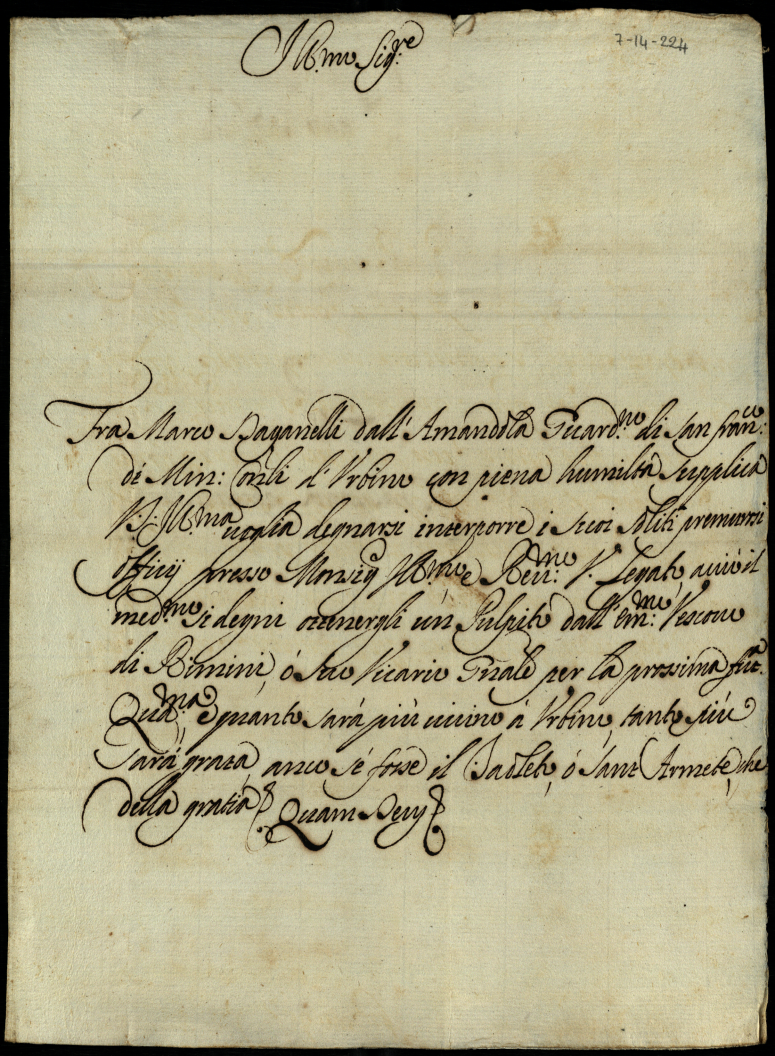 7-14-224
Ill.mo Sig.re
Fra Marco Paganelli dall'Amandola Guard.no di San Fran.co
de Min: Con.li d'Urbino con piena humiltà supplica
V.S. Ill.ma voglia degnarsi interporre i suoi soliti premurosi
officij presso Monsig.r Ill.mo e Rev.mo V. Legato, acciò il
med.mo si degni ottenergli un Pulpito dall'Em.mo Vescovo
di Rimini ò suo Vicario Gn̄ale per la prossima fut.a
Quad.ma e quanto sarà più vicino à Urbino, tanto più
sarà grata, anco sè fosse il, ò Sant'Armete, che
della gratia Quam Deus